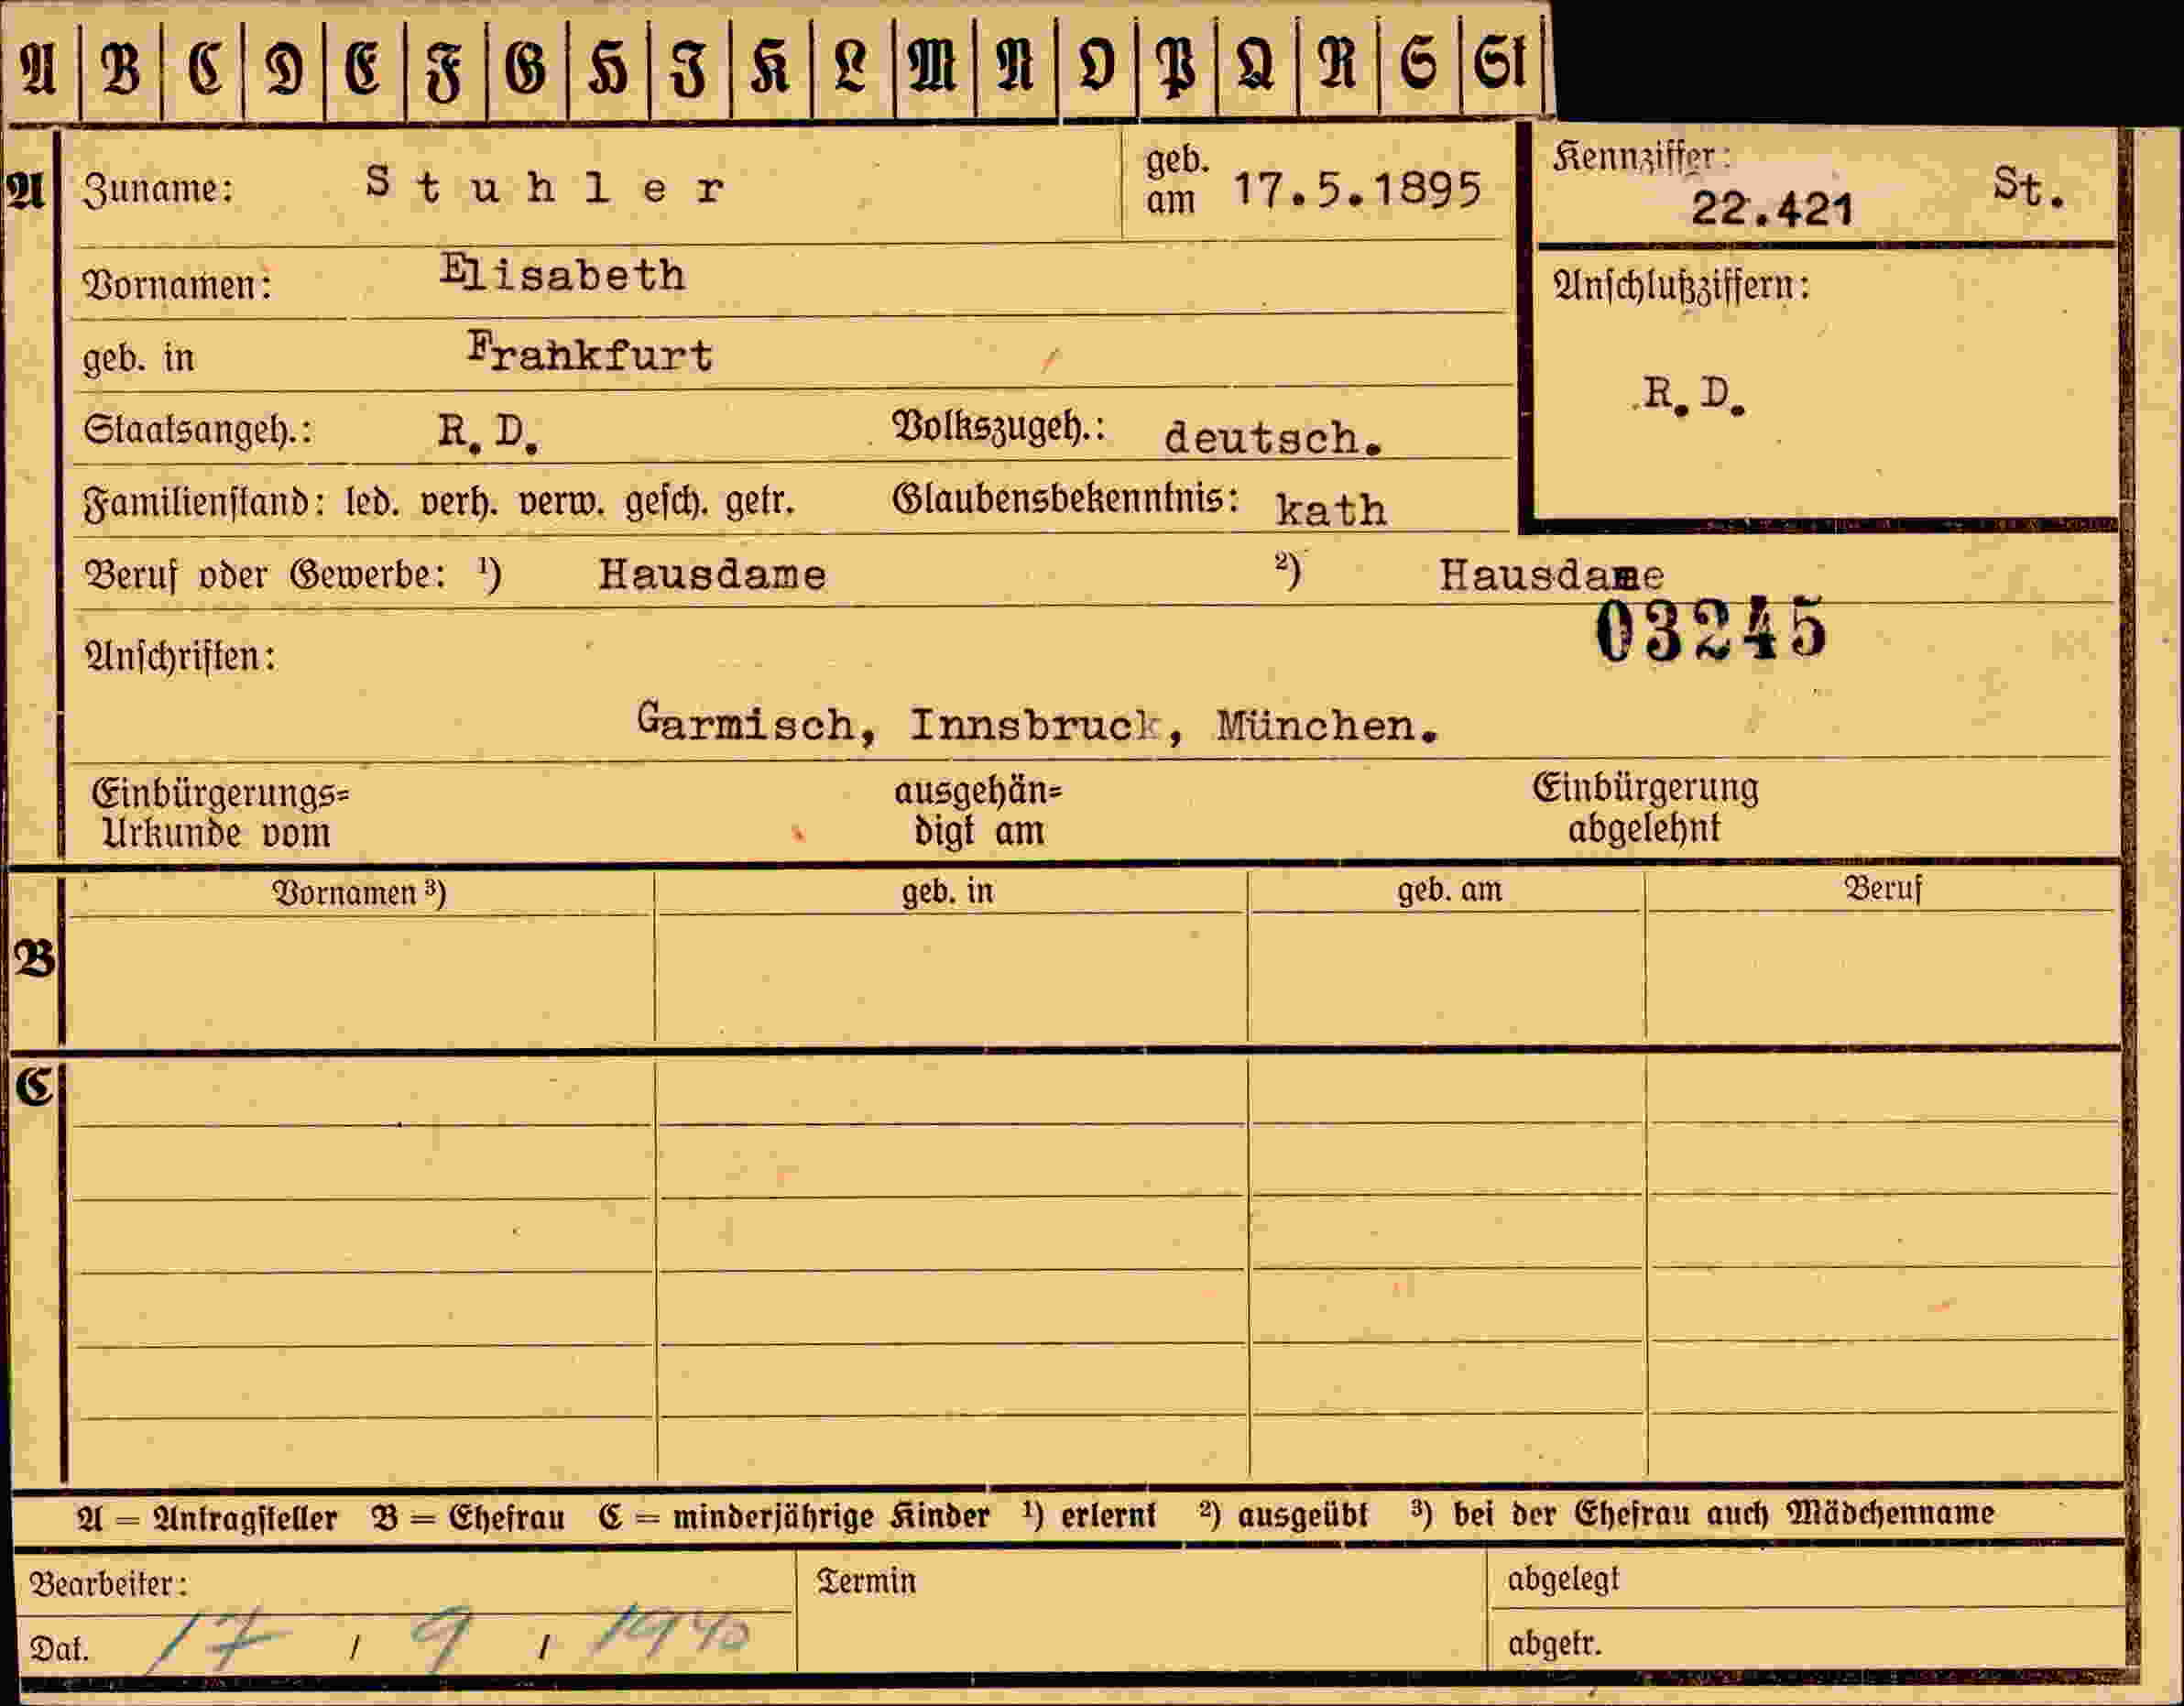 A B C D E F G H I K L M N O P Q R S St
A Zuname: Stuhler geb. am 17.5.1895 Kennziffer: 22.421 St.
Vornamen: Elisabeth Anschlußziffern:
geb. in Frankfurt R.D.
Staatsangeh.: R.D. Volkszugeh.: deutsch.
Familienstand: led. verh. verw. gesch. getr. Glaubensbekenntnis: kath
Beruf oder Gewerbe: ¹) Hausdame ²) Hausdame
03245
Anschriften:
Garmisch, Innsbruck, München.
Einbürgerungs= ausgehän= Einbürgerung
Urkunde vom digt am abgelehnt
Vornamen ³) geb. in geb. am Beruf
B
C
A = Antragsteller B = Ehefrau C = minderjährige Kinder ¹) erlernt ²) ausgeübt ³) bei der Ehefrau auch Mädchenname
Bearbeiter: Termin abgelegt
Dat. 17 / 9 / 1940 abgetr.